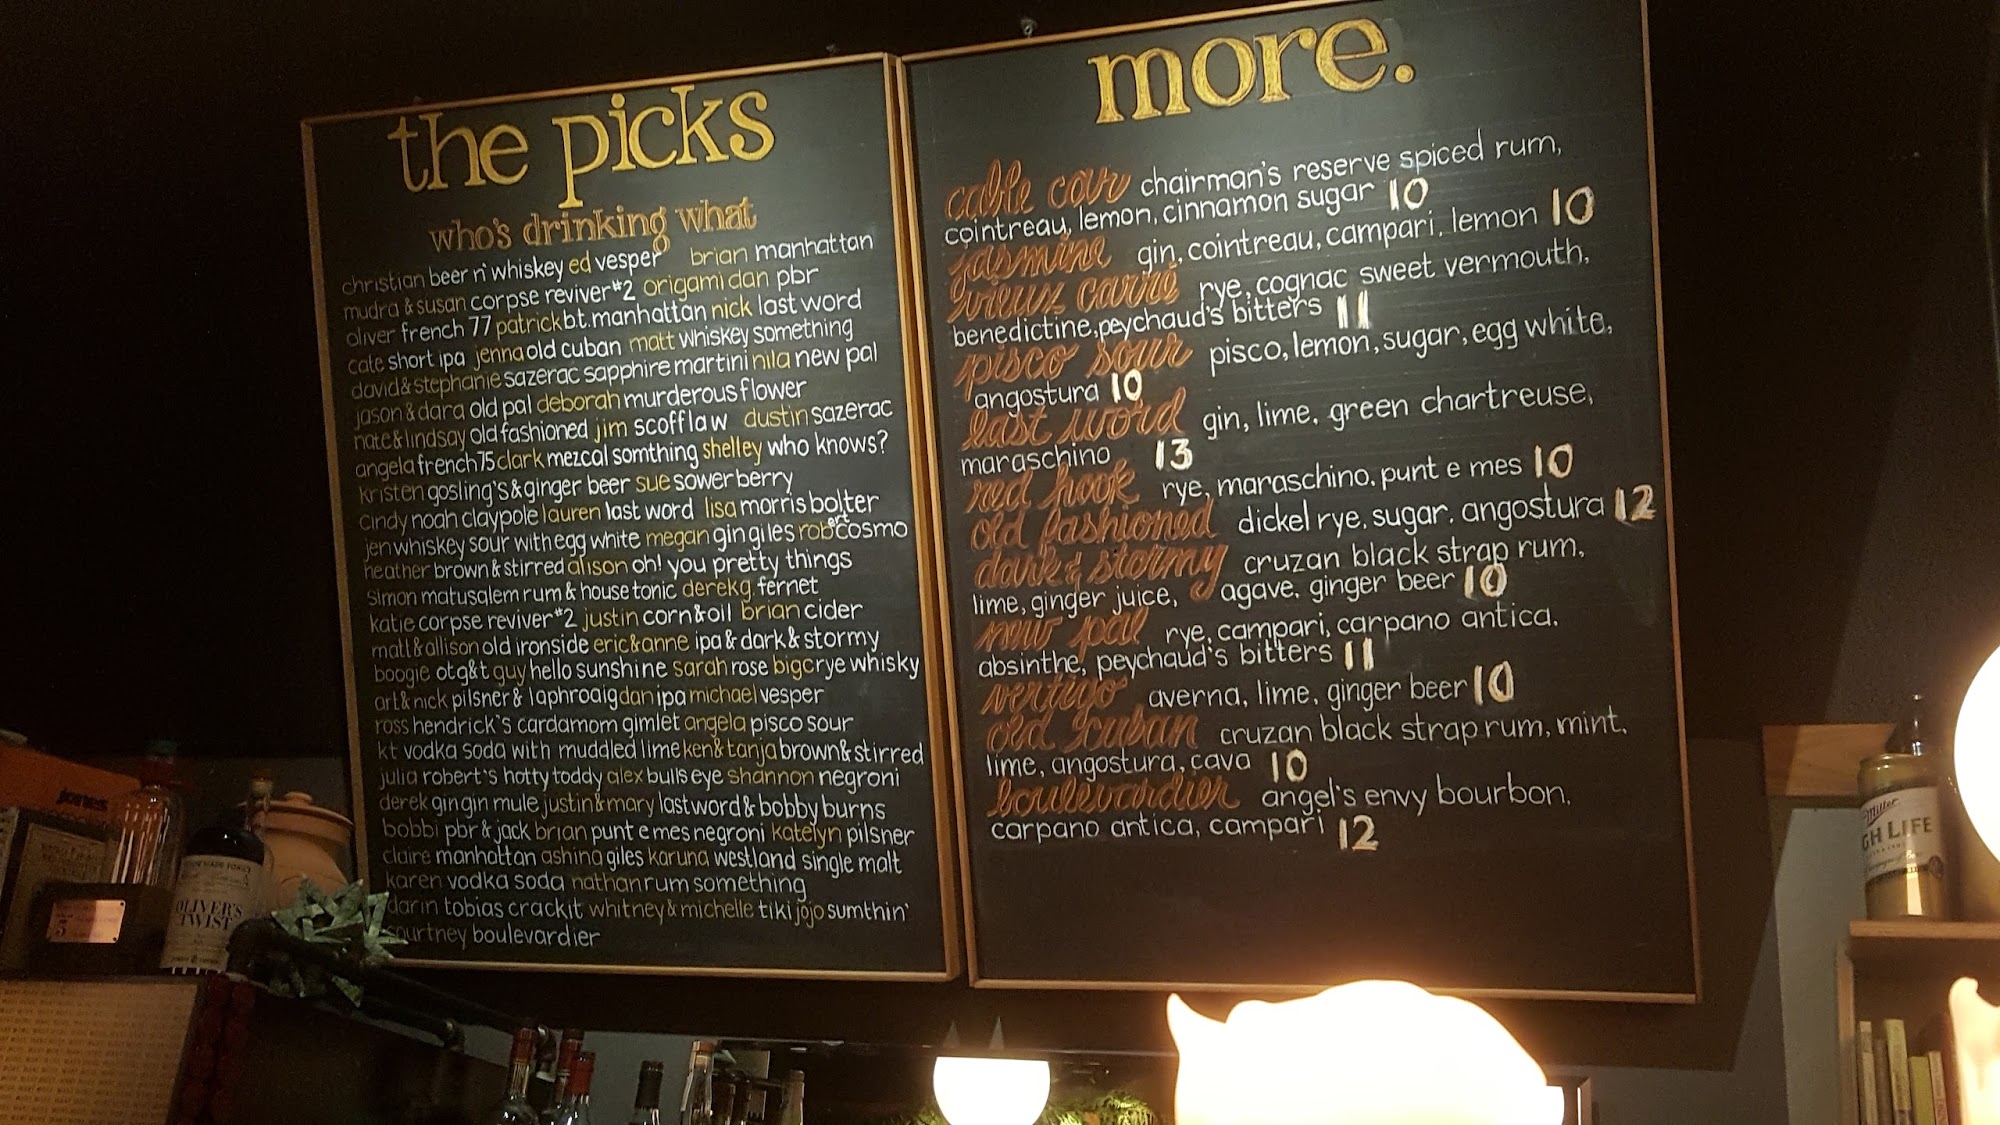 the picks
who's drinking what
christian beer n' whiskey ed vesper brian manhattan
mudra & susan corpse reviver #2 origami dan pbr
oliver french 77 patrick b.t. manhattan nick last word
cate short ipa jenna old cuban matt whiskey something
david & stephanie sazerac sapphire martini nila new pal
jason & dara old pal deborah murderous flower
nate & lindsay old fashioned jim scofflaw dustin sazerac
angela french 75 clark mezcal somthing shelley who knows?
kristen gosling's & ginger beer sue sower berry
cindy noah claypole lauren last word lisa morris bolter
jen whiskey sour with egg white megan gin giles robert cosmo
heather brown & stirred alison oh! you pretty things
simon matusalem rum & house tonic derek g. fernet
katie corpse reviver #2 justin corn & oil brian cider
matt & allison old ironside eric & anne ipa & dark & stormy
boogie otg&t guy hello sunshine sarah rose big c rye whisky
art & nick pilsner & laphroaig dan ipa michael vesper
ross hendrick's cardamom gimlet angela pisco sour
kt vodka soda with muddled lime ken & tanja brown & stirred
julia robert's hotty toddy alex bulls eye shannon negroni
derek gin gin mule justin & mary last word & bobby burns
bobbi pbr & jack brian punt e mes negroni katelyn pilsner
claire manhattan ashina giles karuna westland single malt
karen vodka soda nathan rum something
darin tobias crackit whitney & michelle tiki jojo sumthin'
courtney boulevardier
more.
cable car chairman's reserve spiced rum,
cointreau, lemon, cinnamon sugar 10
jasmine gin, cointreau, campari, lemon 10
vieux carré rye, cognac sweet vermouth,
benedictine, peychaud's bitters 11
pisco sour pisco, lemon, sugar, egg white,
angostura 10
last word gin, lime, green chartreuse,
maraschino 13
red hook rye, maraschino, punt e mes 10
old fashioned dickel rye, sugar, angostura 12
dark & stormy cruzan black strap rum,
lime, ginger juice, agave, ginger beer 10
new pal rye, campari, carpano antica,
absinthe, peychaud's bitters 11
vertigo averna, lime, ginger beer 10
old cuban cruzan black strap rum, mint,
lime, angostura, cava 10
boulevardier angel's envy bourbon,
carpano antica, campari 12
jones
OLIVER'S
TWIST
Miller
GH LIFE